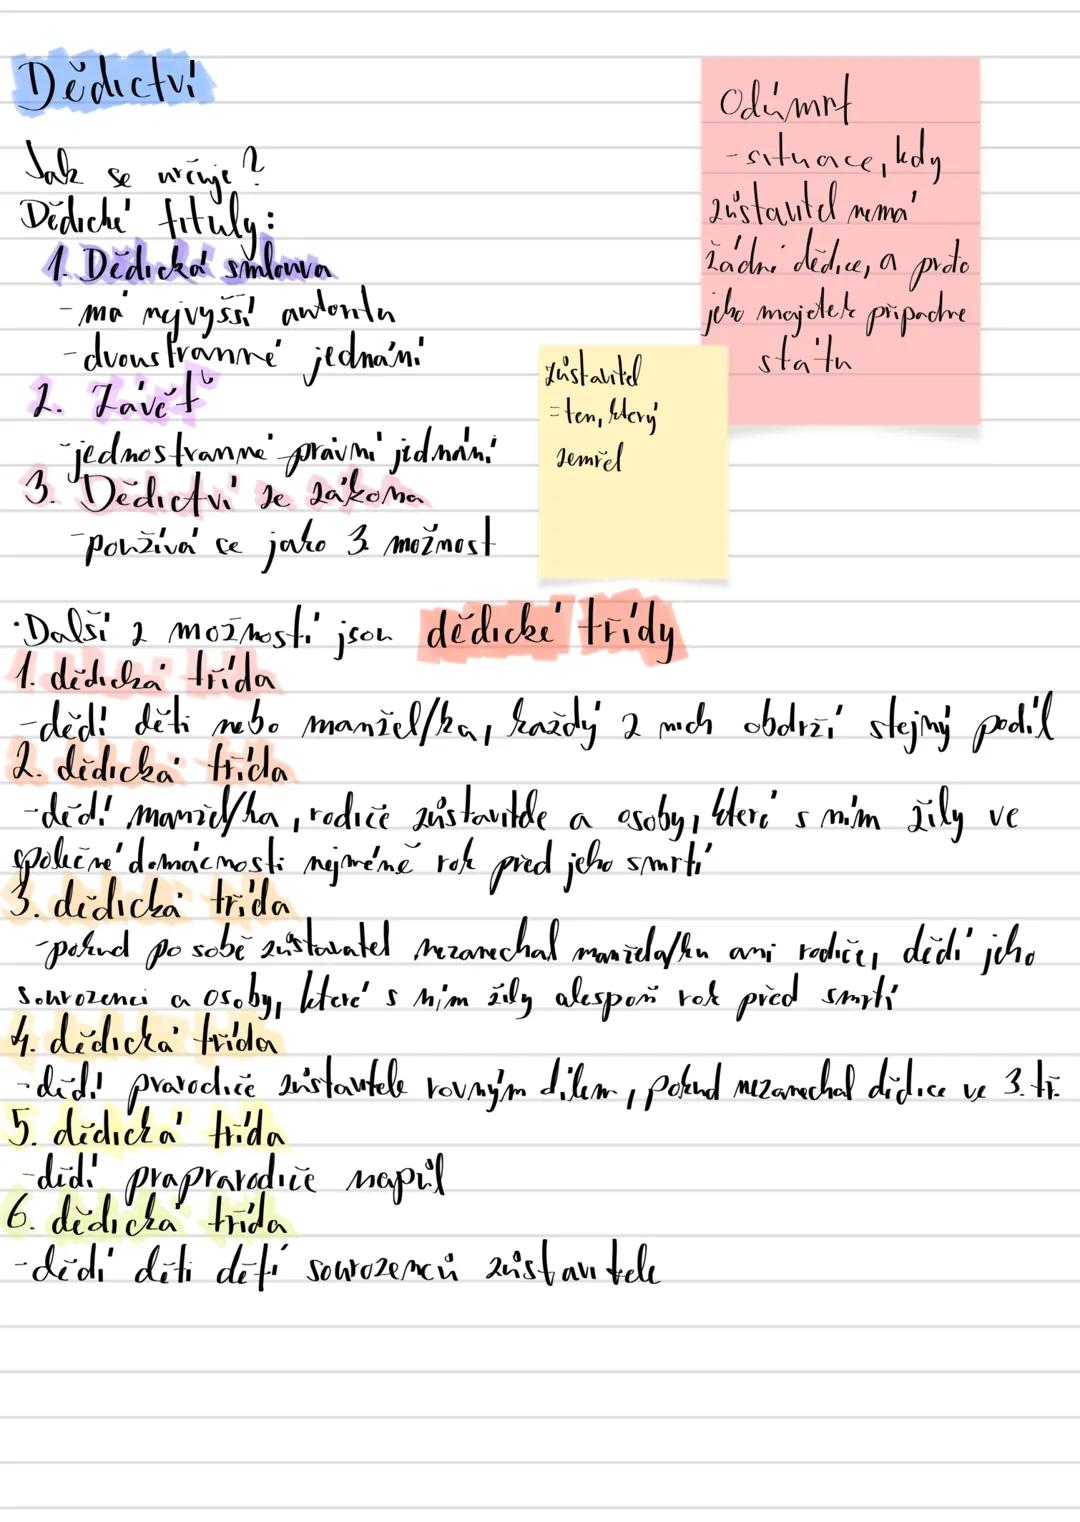 Dědictví
Jak se určuje?
Dědické tituly:
1. Dědická smlouva
- má nejvyšší autoritu
- dvoustranné jednání
2. Závěť
- jednostranné právní jednání
3. Dědictví ze zákona
- používá se jako 3. možnost
Odúmrť
- situace, kdy
zůstavitel nemá
žádné dědice, a proto
jeho majetek připadne
státu
zůstavitel
= ten, který
zemřel
• Další z možností jsou dědické třídy
1. dědická třída
- dědí děti nebo manžel/ka, každý z nich obdrží stejný podíl
2. dědická třída
- dědí manžel/ka, rodiče zůstavitele a osoby, které s ním žily ve
společné domácnosti nejméně rok před jeho smrtí
3. dědická třída
- pokud po sobě zůstavatel nezanechal manžela/ku ani rodiče, dědí jeho
sourozenci a osoby, které s ním žily alespoň rok před smrtí
4. dědická třída
- dědí prarodiče zůstavitele rovným dílem, pokud nezanechal dědice ve 3. tř.
5. dědická třída
- dědí praprarodiče napůl
6. dědická třída
- dědí děti dětí sourozenců zůstavitele